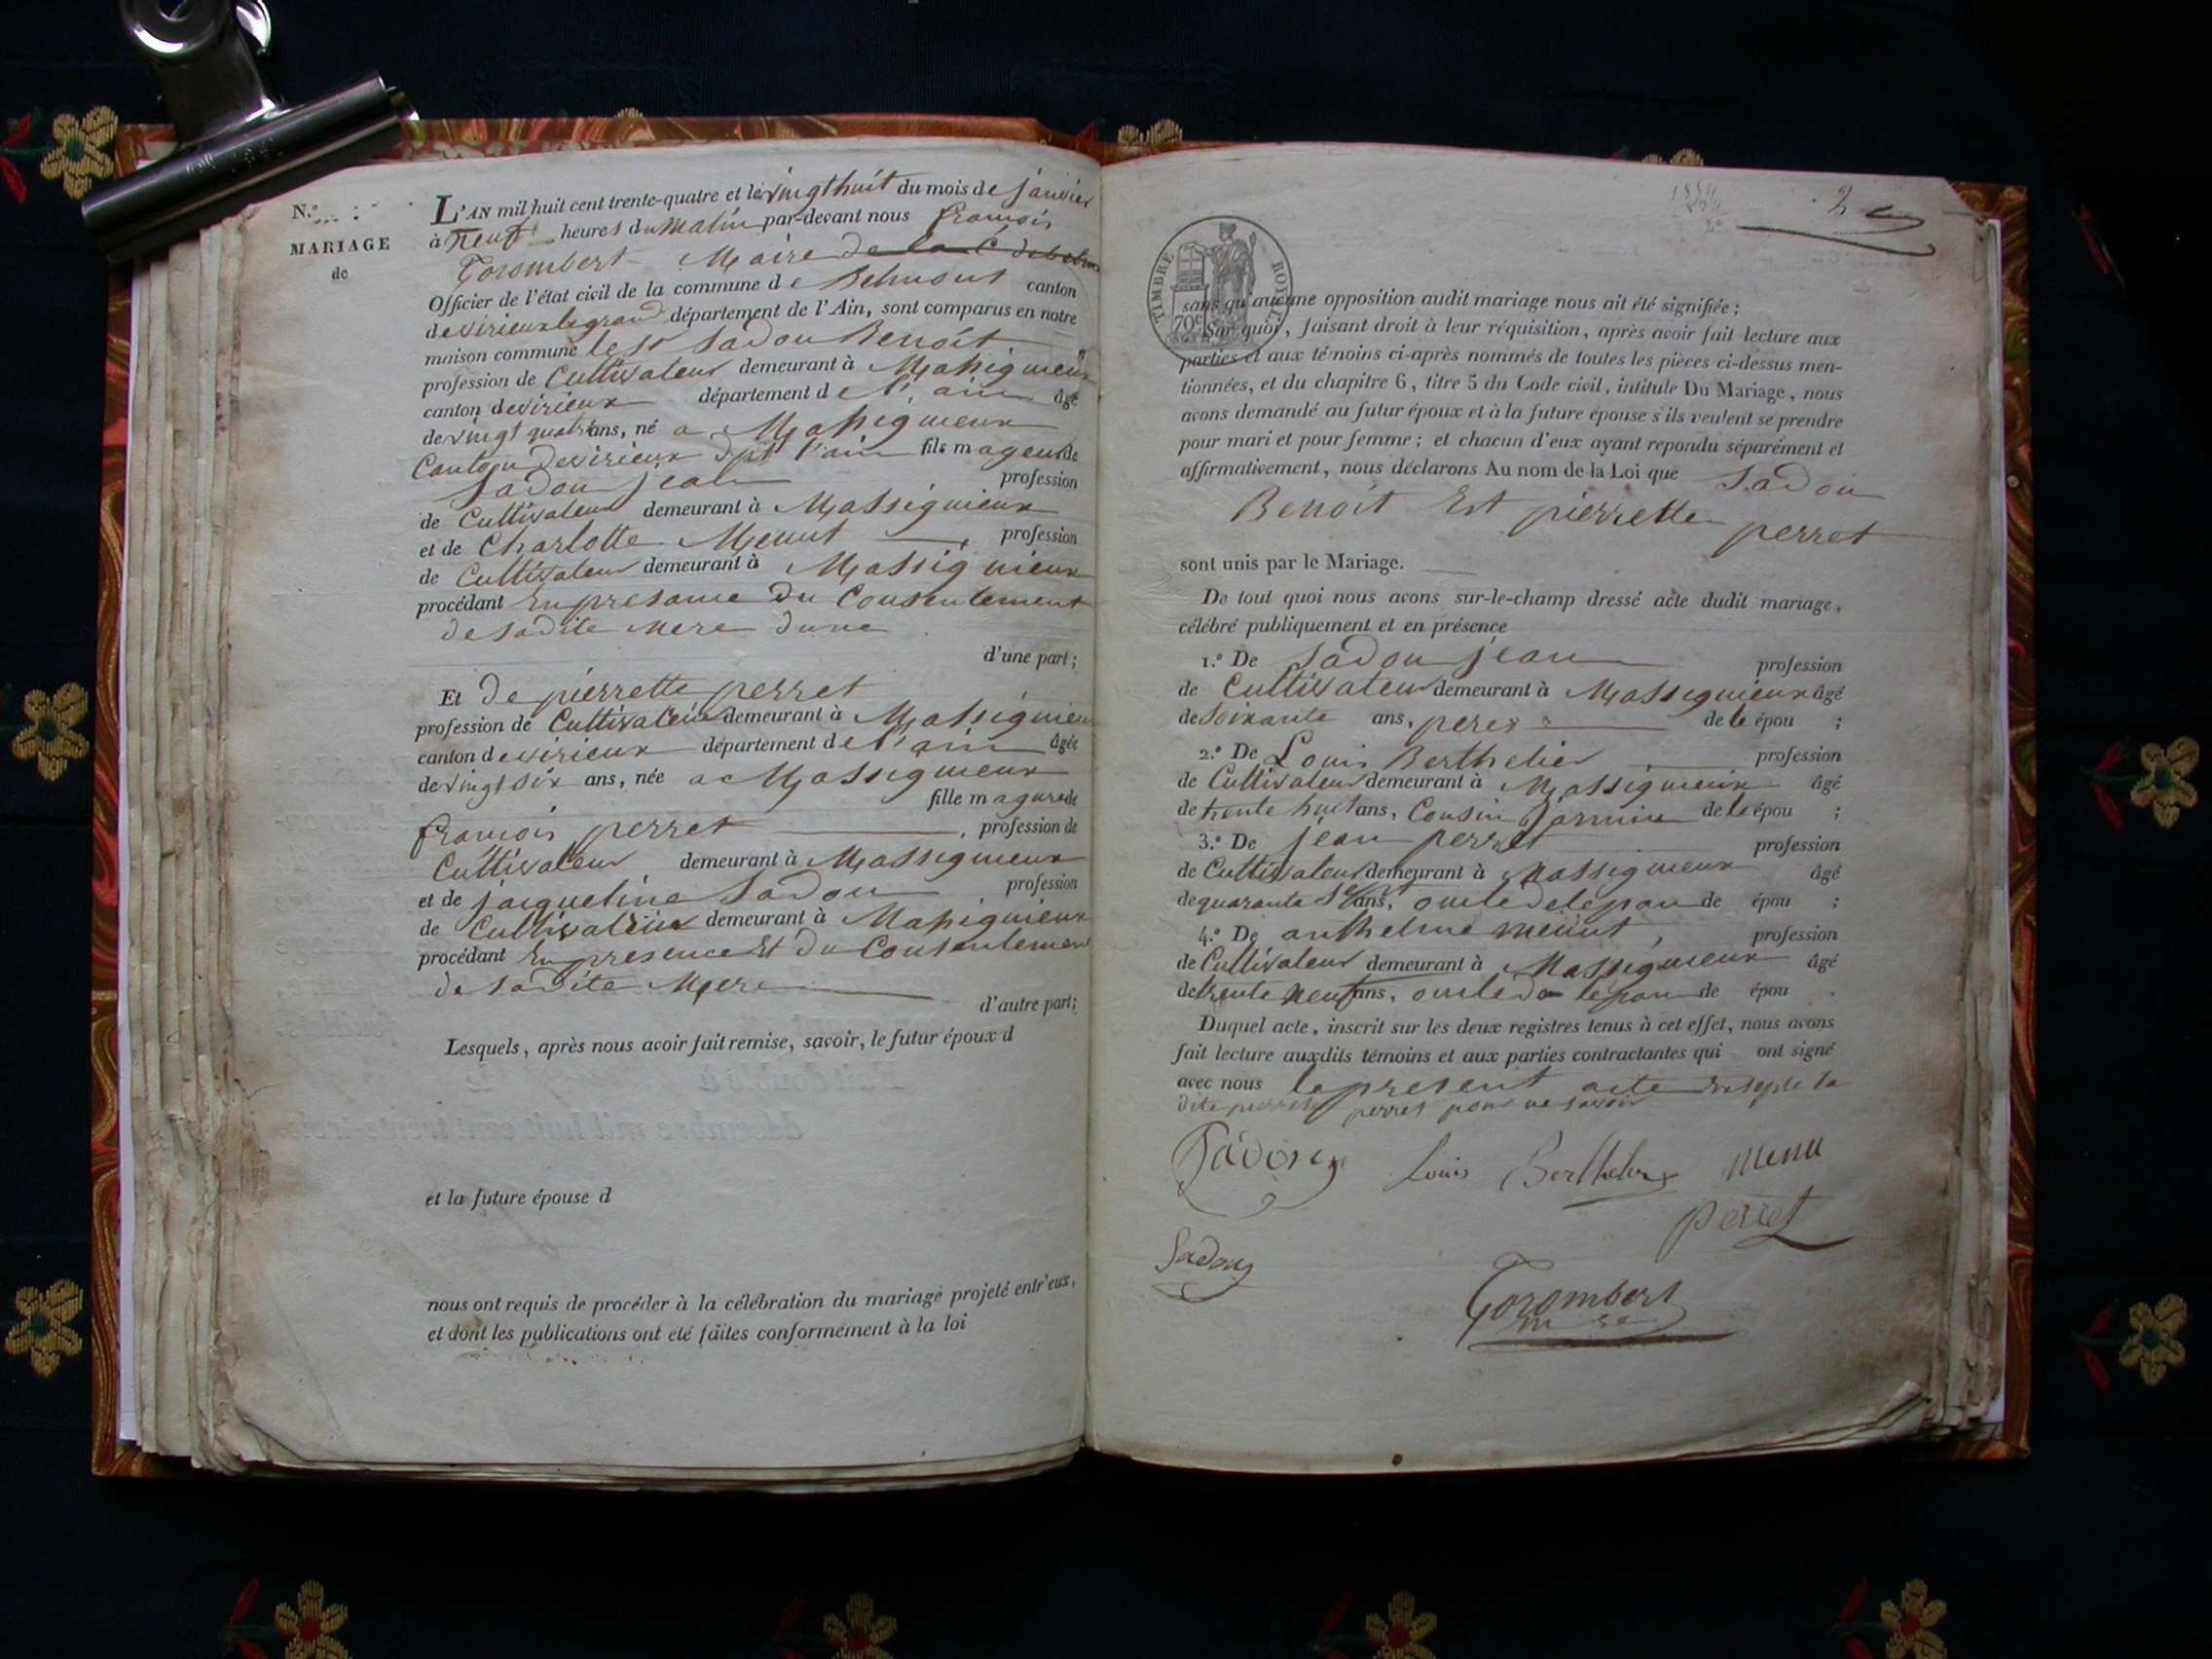 N.º
MARIAGE
de
L'AN mil huit cent trente-quatre et le vingt huit du mois de janvier
à neuf heures du matin par-devant nous françois
Gorombert Maire de la C de belm
Officier de l'état civil de la commune de Belmont canton
de virieux le grand département de l'Ain, sont comparus en notre
maison commune le sr Sadou Benoit
profession de Cultivateur demeurant à Massignieux
canton de virieux département de l'ain âgé
de vingt quatre ans, né a Massignieux
Canton de virieux dpt l'ain fils mageur de
Sadou jean profession
de Cultivateur demeurant à Massignieux
et de Charlotte Menut, profession
de Cultivateur demeurant à Massignieux
procédant En presance du Consentement
de sadite mere dune
d'une part;
Et de pierrette perret
profession de Cultivateur demeurant à Massignieux
canton de virieux département de l'ain âgée
de vingt six ans, née a Massignieux
fille magure de
françois perret, profession de
Cultivateur demeurant à Massignieux
et de jacqueline Sadou profession
de Cultivateur demeurant à Massignieux
procédant En presence Et du Consentement
de sadite Mere
d'autre part;
Lesquels, après nous avoir fait remise, savoir, le futur époux d
et la future épouse d
nous ont requis de procéder à la célébration du mariage projeté entr'eux,
et dont les publications ont été faites conformément à la loi
2
TIMBRE ROYAL
70c
sans qu'aucune opposition audit mariage nous ait été signifiée;
Sur quoi, faisant droit à leur réquisition, après avoir fait lecture aux
parties et aux témoins ci-après nommés de toutes les pièces ci-dessus men-
tionnées, et du chapitre 6, titre 5 du Code civil, intitulé Du Mariage, nous
avons demandé au futur époux et à la future épouse s'ils veulent se prendre
pour mari et pour femme; et chacun d'eux ayant repondu séparément et
affirmativement, nous déclarons Au nom de la Loi que Sadou
Benoit Et pierrette perret
sont unis par le Mariage.
De tout quoi nous avons sur-le-champ dressé acte dudit mariage,
célébré publiquement et en présence
1.º De Sadou jean profession
de Cultivateur demeurant à Massignieux âgé
de soixante ans, pere de le épou ;
2.º De Louis Berthelier profession
de Cultivateur demeurant à Massignieux âgé
de trente huit ans, Cousin Jarmin de le épou ;
3.º De jean perret profession
de Cultivateur demeurant à Massignieux âgé
de quarante ans, oncle de lepou de épou ;
4.º De anthelme menut, profession
de Cultivateur demeurant à Massignieux âgé
de trente neuf ans, oncle de lepou de épou
Duquel acte, inscrit sur les deux registres tenus à cet effet, nous avons
fait lecture auxdits témoins et aux parties contractantes qui ont signé
avec nous le present acte la
dite perret pour ne savoir
Sadou Louis Berthelier menu
perret
Sadou
Gorombert